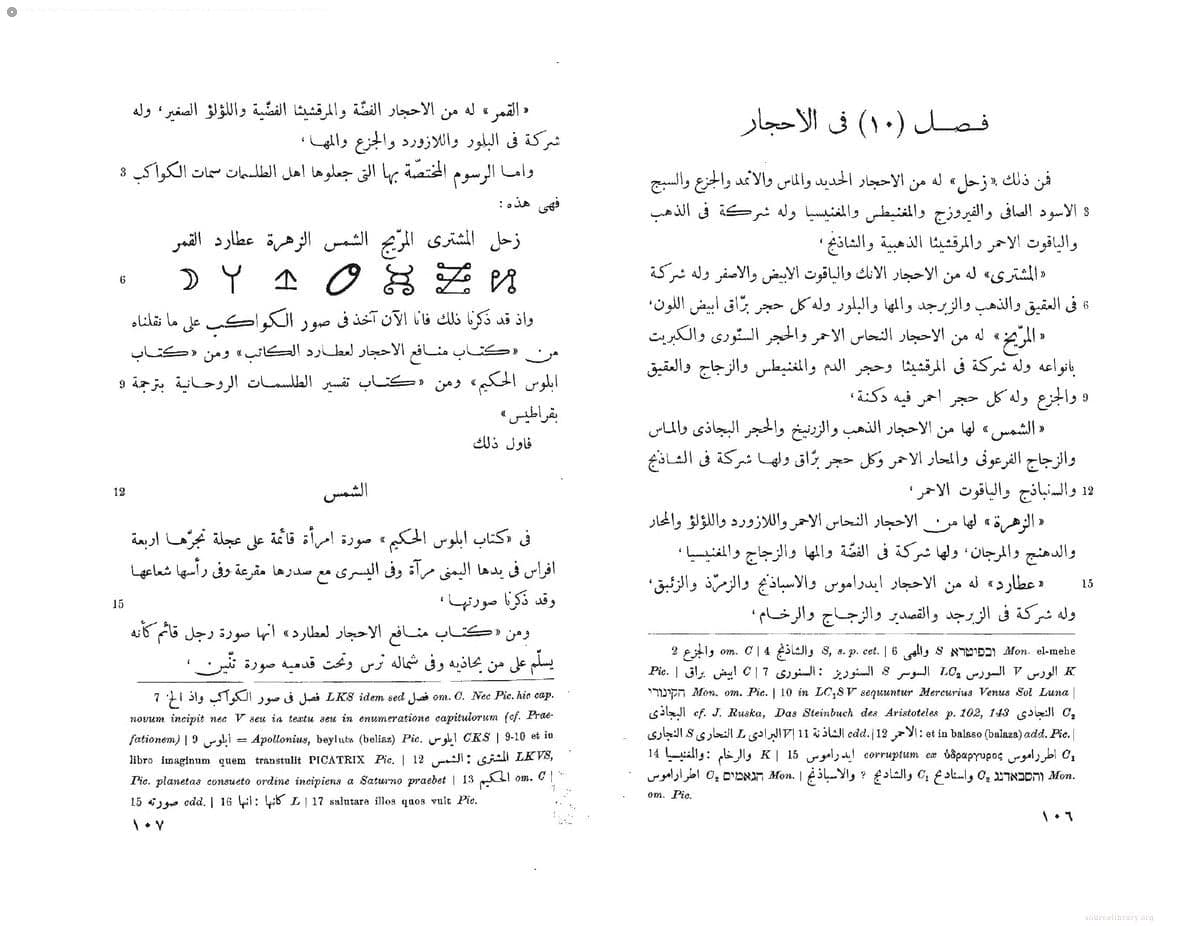 فصل (١٠) في الأحجار
فمن ذلك «زحل» له من الاحجار الحديد والماس والاثمد والجزع والسبج
3 الاسود الصافى والفيروزج والمغنيطس والمغنيسيا وله شركة فى الذهب
والياقوت الاحمر والمرقشيثا الذهبية والشاذنج،
«المشترى» له من الاحجار الانك والياقوت الابيض والاصفر وله شركة
6 فى العقيق والذهب والزبرجد والمها والبلور وله كل حجر برّاق ابيض اللون،
«المرّيخ» له من الاحجار النحاس الاحمر والحجر السنّورى والكبريت
بانواعه وله شركة فى المرقشيثا وحجر الدم والمغنيطس والزجاج والعقيق
9 والجزع وله كل حجر احمر فيه دكنة،
«الشمس» لها من الاحجار الذهب والزرنيخ والحجر البجاذى والماس
والزجاج الفرعونى والمحار الاحمر وكل حجر برّاق ولها شركة فى الشاذنج
12 والسنباذج والياقوت الاحمر،
«الزهرة» لها من الاحجار النحاس الاحمر واللازورد واللؤلؤ والمحار
والدهنج والمرجان، ولها شركة فى الفضّة والمها والزجاج والمغنيسيا،
15 «عطارد» له من الاحجار ايدراموس والاسباذنج والزمرّذ والزئبق،
وله شركة فى الزبرجد والقصدير والزجاج والرخام،
2 والجزع om. C | 4 والشاذنج S, s. p. cet. | 6 والمهى S ובפיטרא Mon. el-mehe
Pic. | ابيض براق C | 7 السنورى : السنوريز S السوسر LC₂ السورس V الورس K
הקינורי Mon. om. Pic. | 10 in LC₁SV sequuntur Mercurius Venus Sol Luna |
البجاذى cf. J. Ruska, Das Steinbuch des Aristoteles p. 102, 143 النجادى C₂
النجارى S النحارى L البرادى V | 11 الشاذنة cdd. | 12 الاحمر : et in balaso (balaza) add. Pic. |
14 والمغنيسيا : والرخام K | 15 ايدراموس corruptum ex ὑδράργυρος اطرراموس C₁
اطراراموس C₂ הגאמוס Mon. | والاسباذنج ? والشادبح C₁ واسنادبح C₂ והסבארנג Mon.
om. Pic.
١٠٦
«القمر» له من الاحجار الفضّة والمرقشيثا الفضّية واللؤلؤ الصغير، وله
شركة فى البلور واللازورد والجزع والمها،
3 واما الرسوم المختصّة بها التى جعلوها اهل الطلسمات سمات الكواكب
فهى هذه:
زحل المشترى المرّيخ الشمس الزهرة عطارد القمر
6
واذ قد ذكرنا ذلك فانا الآن آخذ فى صور الكواكب على ما نقلناه
من «كتاب منافع الاحجار لعطارد الكاتب» ومن «كتاب
9 ابلوس الحكيم» ومن «كتاب تفسير الطلسمات الروحانية بترجمة
بقراطيس»
فاول ذلك
12 الشمس
فى «كتاب ابلوس الحكيم» صورة امرأة قائمة على عجلة تجرّها اربعة
افراس فى يدها اليمنى مرآة وفى اليسرى مع صدرها مقرعة وفى رأسها شعاعها
15 وقد ذكرنا صورتها،
ومن «كتاب منافع الاحجار لعطارد» انها صورة رجل قائم كأنه
يسلّم على من يحاذيه وفى شماله ترس وتحت قدميه صورة تنّين،
7 فصل فى صور الكواكب واذ الخ LKS idem sed فصل om. C. Nec Pic. hic cap.
novum incipit nec V seu in textu seu in enumeratione capitulorum (cf. Prae-
fationem) | 9 ابلوس = Apollonius, beyluts (beliaz) Pic. ايلوس CKS | 9-10 et in
libro imaginum quem transtulit PICATRIX Pic. | 12 الشمس : المشترى LKVS,
Pic. planetas consueto ordine incipiens a Saturno praebet | 13 الحكيم om. C |
15 صورته cdd. | 16 انها : كانها L | 17 salutare illos quos vult Pic.
١٠٧
sourcelibrary.org